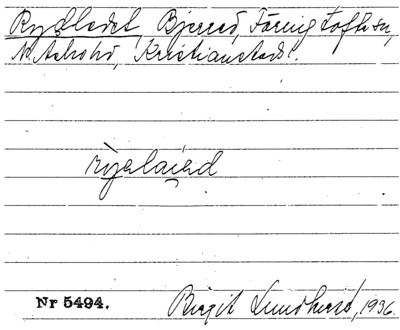 Rydledet, Bjered, Färing tofta sn,
N. Åsbo hd, Kristianstads l.
ryelaied
Nr 5494. Birgit Lundkvist, 1936.